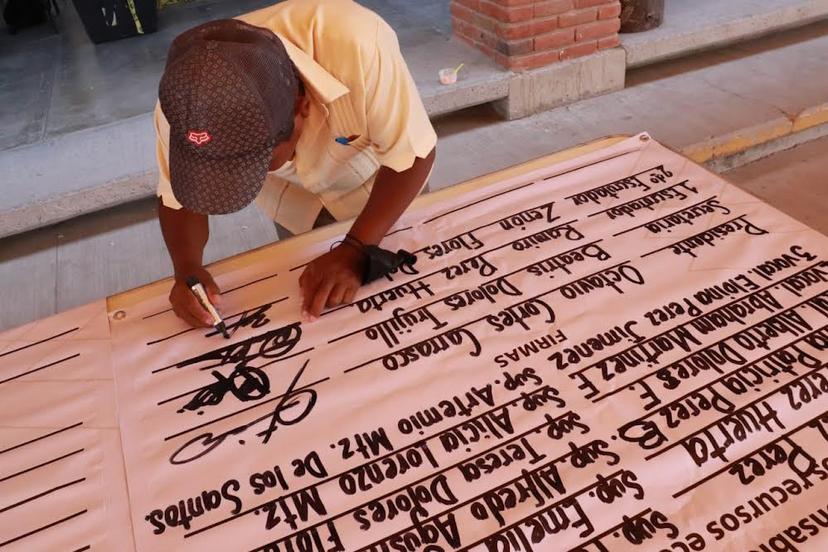 recursos
Perez Sup.
Huerta Sup. Emelia
Patricia Perez B. Sup. Alfredo
Alberto Dolores F. Sup. Teresa Dolores
Vocal. Abraham Martinez F. Sup. Alicia Lorenzo Mtz.
3 Vocal. Elvina Perez Jimenez Sup. Artemio Mtz. De los Santos.
FIRMAS
Presidente Octavio Cortes Carrasco
Secretaria Beatris Dolores Trujillo
1 Escrutador Ramiro Perez Huerta
2do Escrutador Zenon Flores De